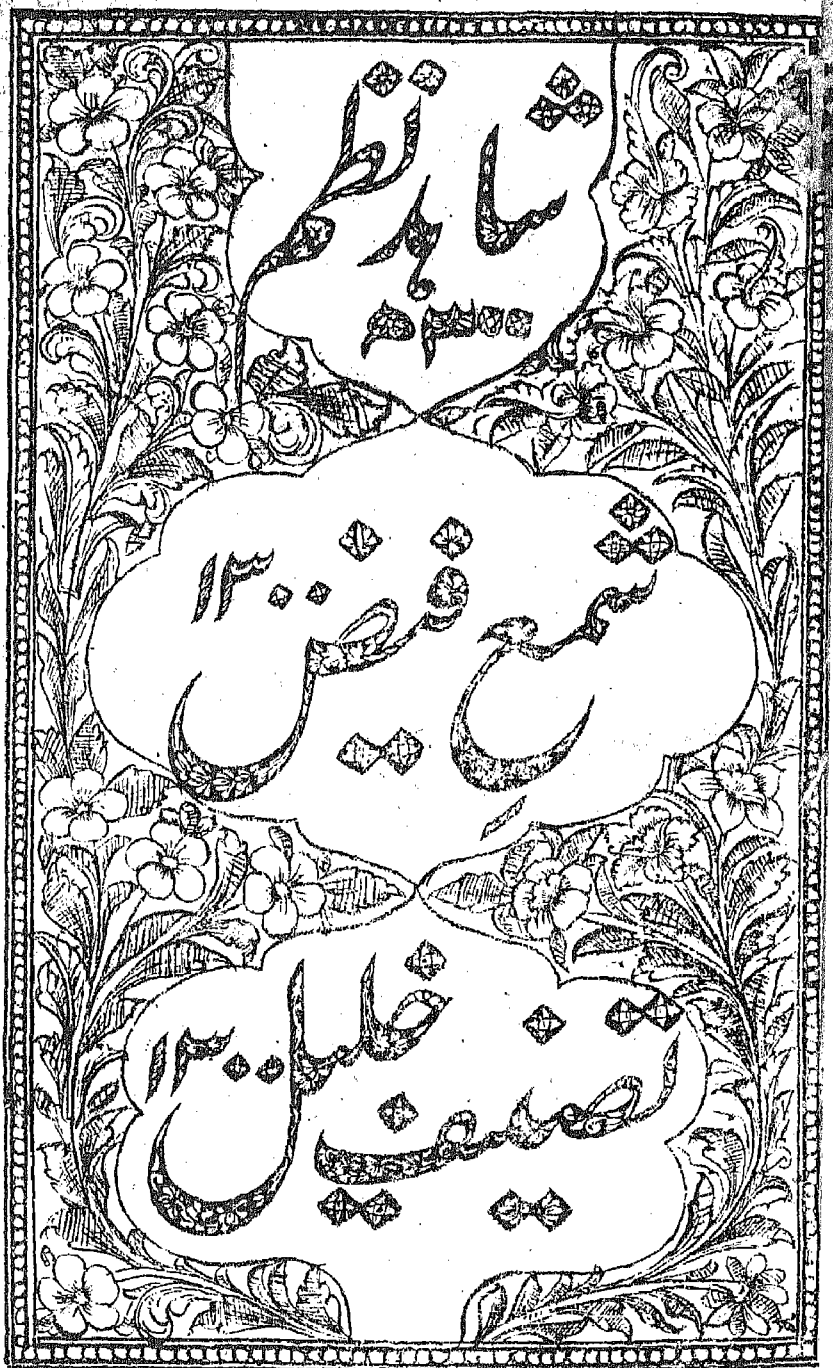 شاہد نظم
۱۳۰۰
شمع فیض ۱۳۰۰
تصنیف خلیل ۱۳۰۰